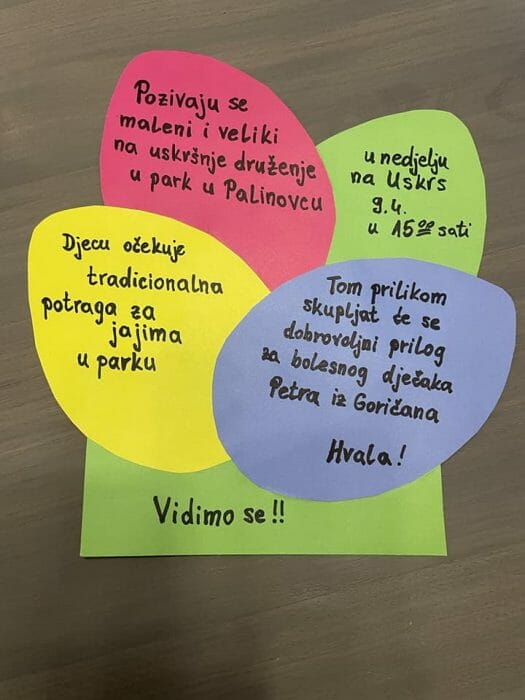 Pozivaju se
maleni i veliki
na uskršnje druženje
u park u Palinovcu
u nedjelju
na Uskrs
9.4.
u 15⁰⁰ sati
Djecu očekuje
tradicionalna
potraga za
jajima
u parku
Tom prilikom
skupljat će se
dobrovoljni prilog
za bolesnog dječaka
Petra iz Goričana
Hvala!
Vidimo se!!